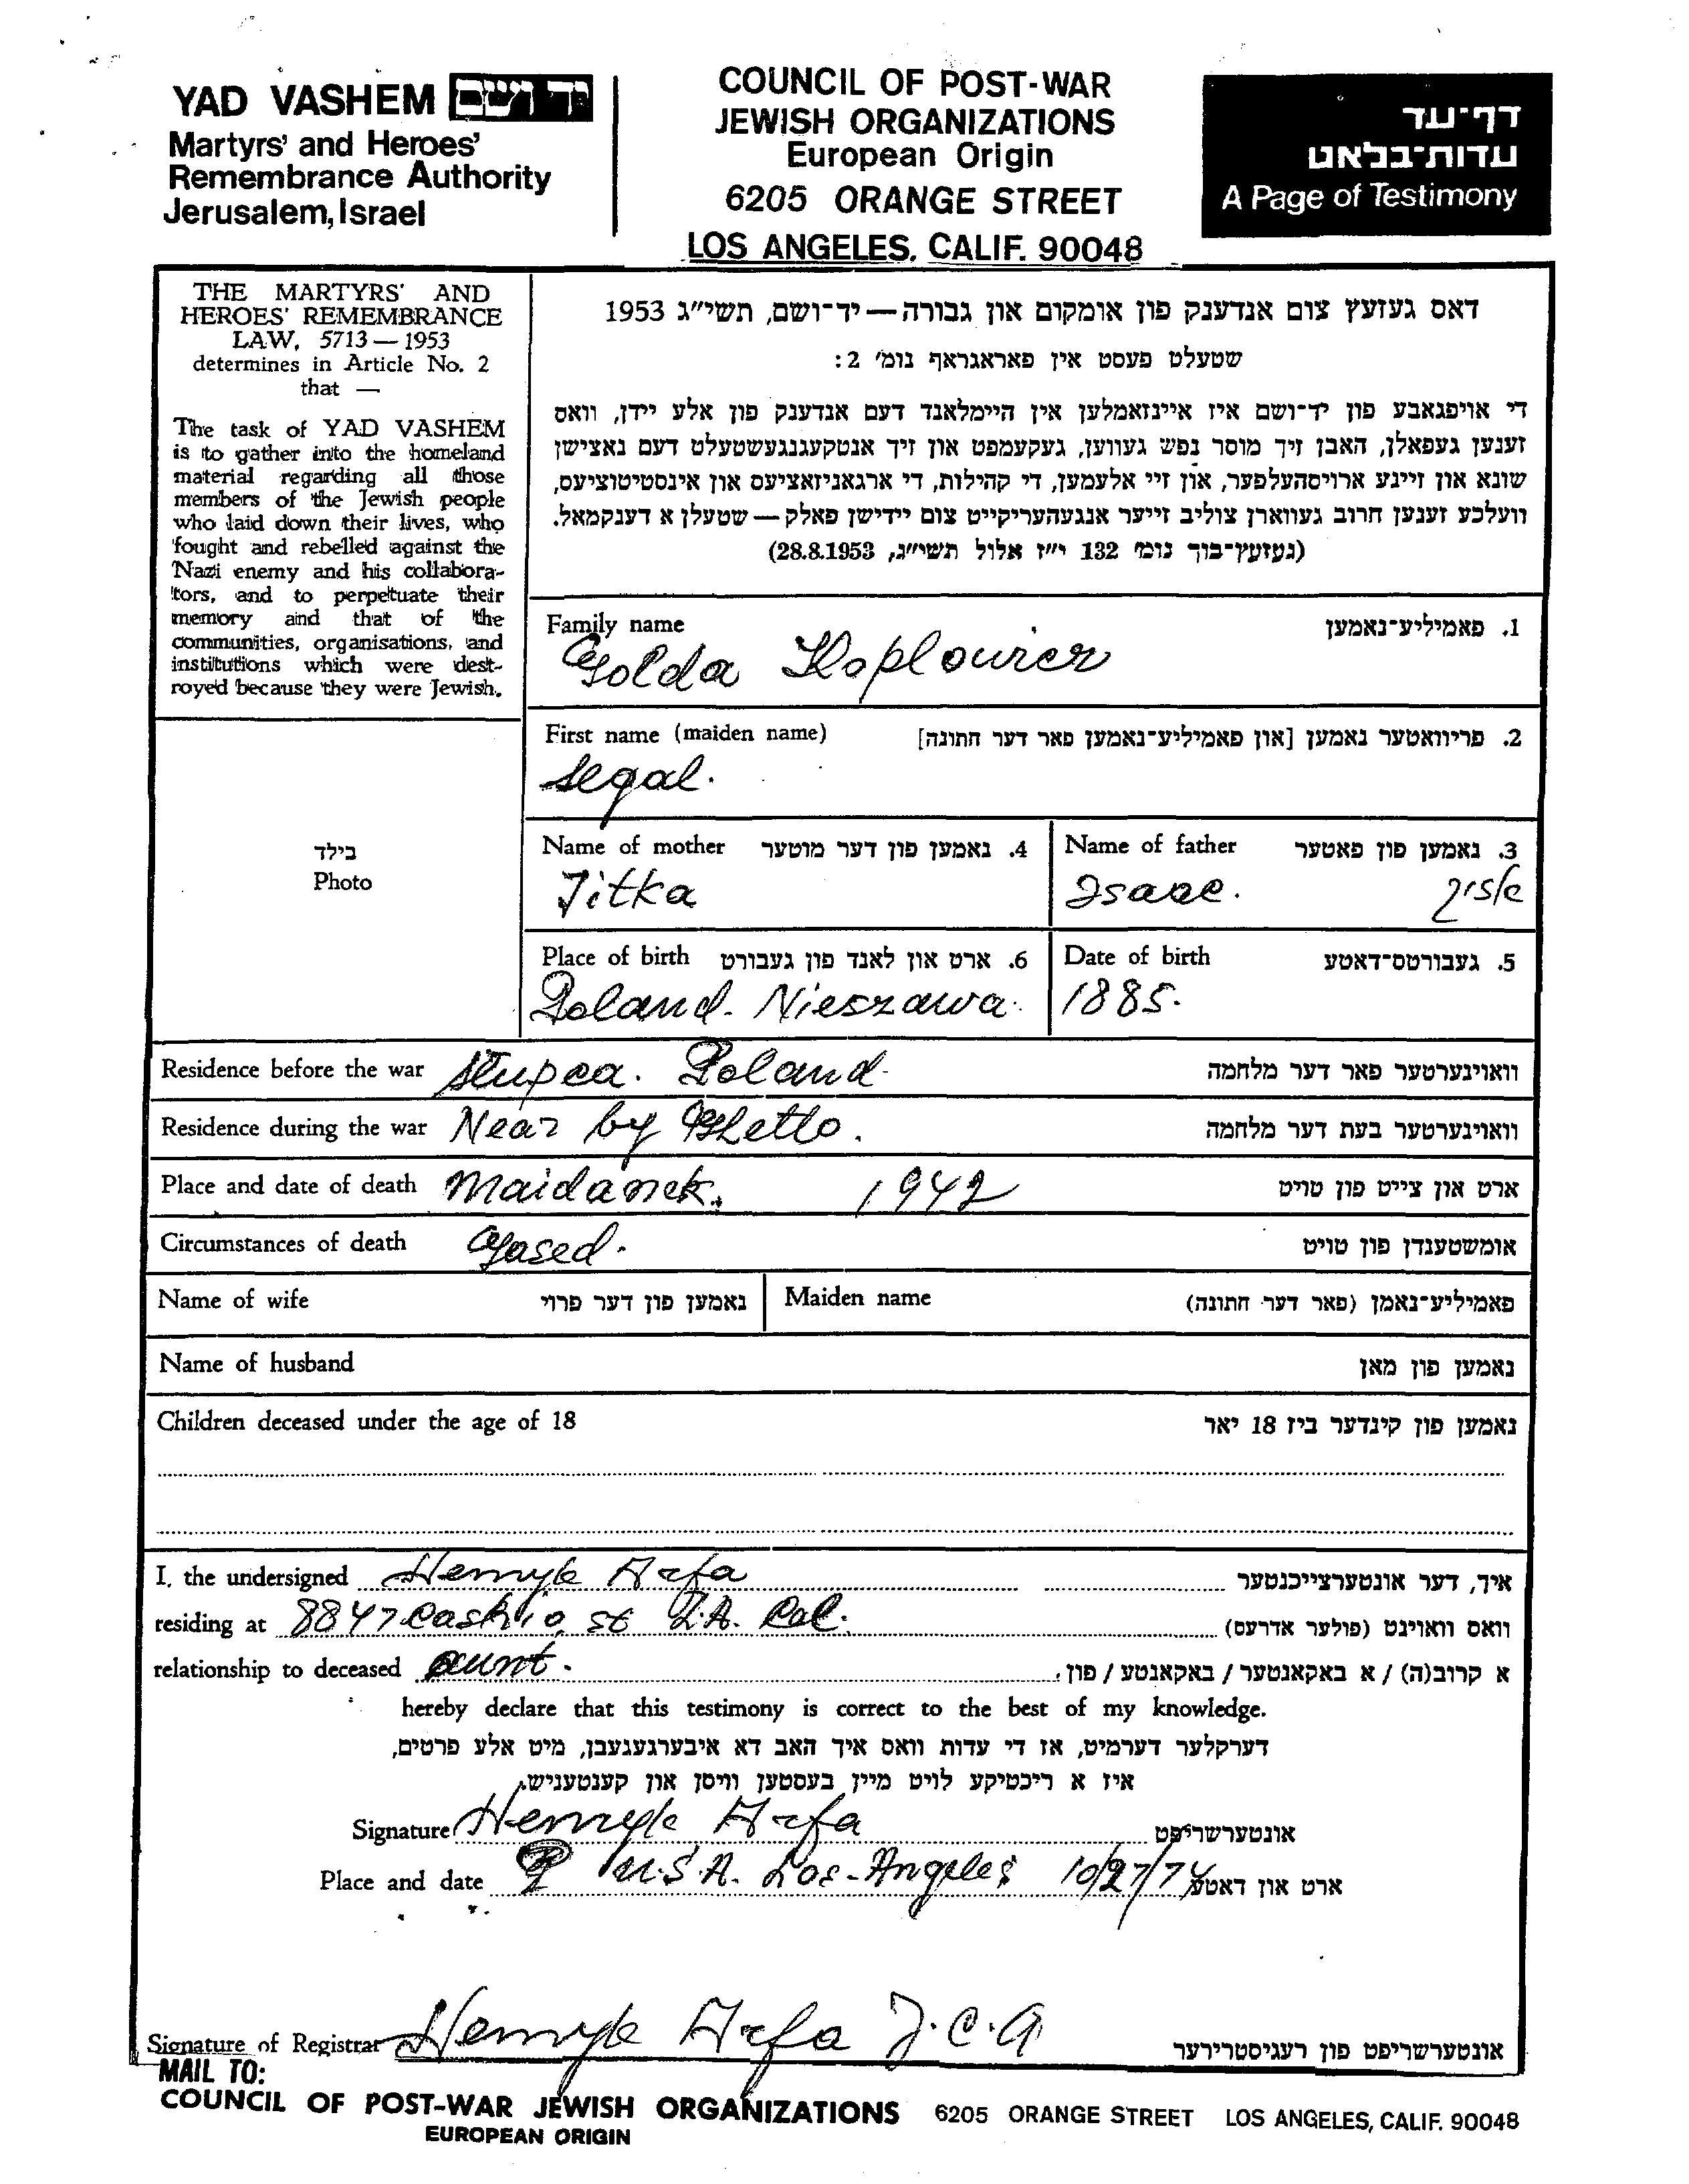 YAD VASHEM יד ושם
Martyrs' and Heroes'
Remembrance Authority
Jerusalem, Israel
COUNCIL OF POST-WAR
JEWISH ORGANIZATIONS
European Origin
6205 ORANGE STREET
LOS ANGELES, CALIF. 90048
דף-עד
עדות-בלאט
A Page of Testimony
THE MARTYRS' AND
HEROES' REMEMBRANCE
LAW, 5713 — 1953
determines in Article No. 2
that —
The task of YAD VASHEM
is to gather into the homeland
material regarding all those
members of the Jewish people
who laid down their lives, who
fought and rebelled against the
Nazi enemy and his collabora-
tors, and to perpetuate their
memory and that of the
communities, organisations, and
institutions which were dest-
royed because they were Jewish.
דאס געזעץ צום אנדענק פון אומקום און גבורה — יד-ושם, תשי"ג 1953
שטעלט פעסט אין פאראגראף נומ' 2:
די אויפגאבע פון יד-ושם איז איינזאמלען אין היימלאנד דעם אנדענק פון אלע יידן, וואס
זענען געפאלן, האבן זיך מוסר נפש געווען, געקעמפט און זיך אנטקעגנגעשטעלט דעם נאצישן
שונא און זיינע ארויסהעלפער, און זיי אלעמען, די קהילות, די ארגאניזאציעס און אינסטיטוציעס,
וועלכע זענען חרוב געווארן צוליב זייער אנגעהעריקייט צום יידישן פאלק — שטעלן א דענקמאל.
(געזעץ-בוך נומ' 132 י"ז אלול תשי"ג, 28.8.1953)
Family name 1. פאמיליע-נאמען
Golda Koplowicz
First name (maiden name) 2. פריוואטער נאמען [און פאמיליע-נאמען פאר דער חתונה]
Segal.
Name of mother 4. נאמען פון דער מוטער
Jitka
Name of father 3. נאמען פון פאטער
Isaac.
Place of birth 6. ארט און לאנד פון געבורט
Poland. Nieszawa.
Date of birth 5. געבורטס-דאטע
1885.
בילד
Photo
Residence before the war Slupca. Poland. וואוינערטער פאר דער מלחמה
Residence during the war Near by Ghetto. וואוינערטער בעת דער מלחמה
Place and date of death Maidanek. 1942 ארט און צייט פון טויט
Circumstances of death Gased. אומשטענדן פון טויט
Name of wife נאמען פון דער פרוי Maiden name פאמיליע-נאמן (פאר דער חתונה)
Name of husband נאמען פון מאן
Children deceased under the age of 18 נאמען פון קינדער ביז 18 יאר
I, the undersigned Henryk Arfa איך, דער אונטערצייכנטער
residing at 8847 Cashio st L.A. Cal. וואס וואוינט (פולער אדרעס)
relationship to deceased aunt. א קרוב(ה) / א באקאנטער / באקאנטע / פון
hereby declare that this testimony is correct to the best of my knowledge.
דערקלער דערמיט, אז די עדות וואס איך האב דא איבערגעגעבן, מיט אלע פרטים,
איז א ריכטיקע לויט מיין בעסטען וויסן און קענטעניש.
Signature Henryk Arfa אונטערשריפט
Place and date U.S.A. Los-Angeles 10/27/74 ארט און דאטע
Signature of Registrar Henryk Arfa J.C.A אונטערשריפט פון רעגיסטרירער
MAIL TO:
COUNCIL OF POST-WAR JEWISH ORGANIZATIONS 6205 ORANGE STREET LOS ANGELES, CALIF. 90048
EUROPEAN ORIGIN